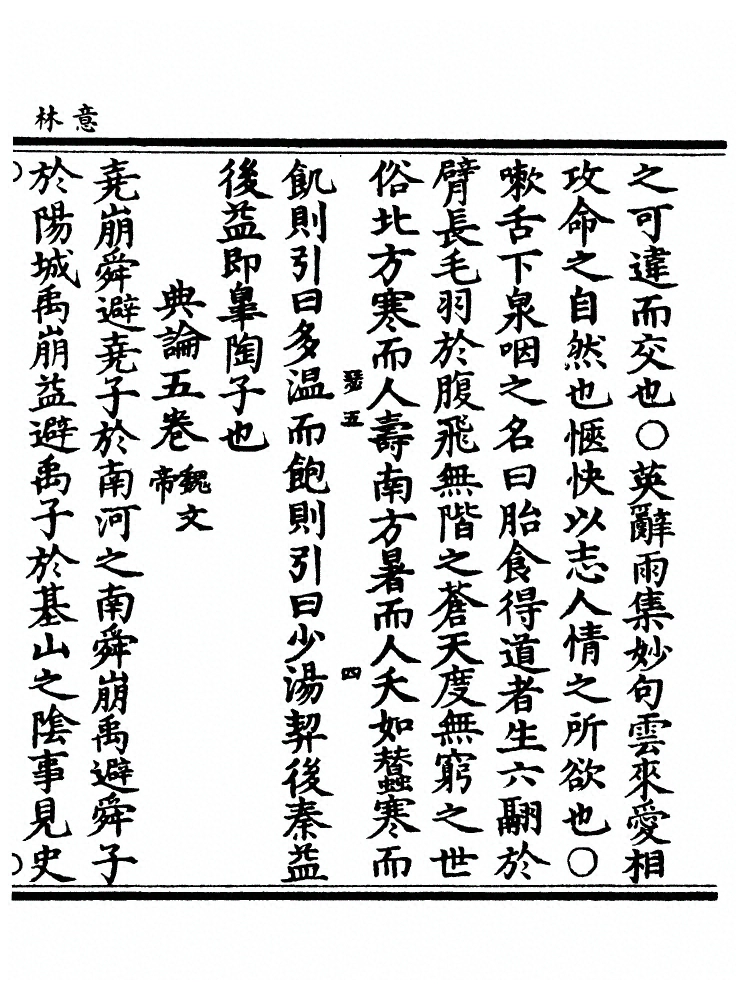 意林
之可違而交也〇英辭雨集妙句雲來愛相
攻命之自然也愜快以志人情之所欲也〇
嗽舌下泉咽之名曰胎食得道者生六翮於
臂長毛羽於腹飛無階之蒼天度無窮之世
俗北方寒而人壽南方暑而人夭如蠶寒而
五 四
飢則引曰多温而飽則引曰少湯契後秦益
後益即臯陶子也
典論五卷魏文帝
堯崩舜避堯子於南河之南舜崩禹避舜子
於陽城禹崩益避禹子於基山之陰事見史